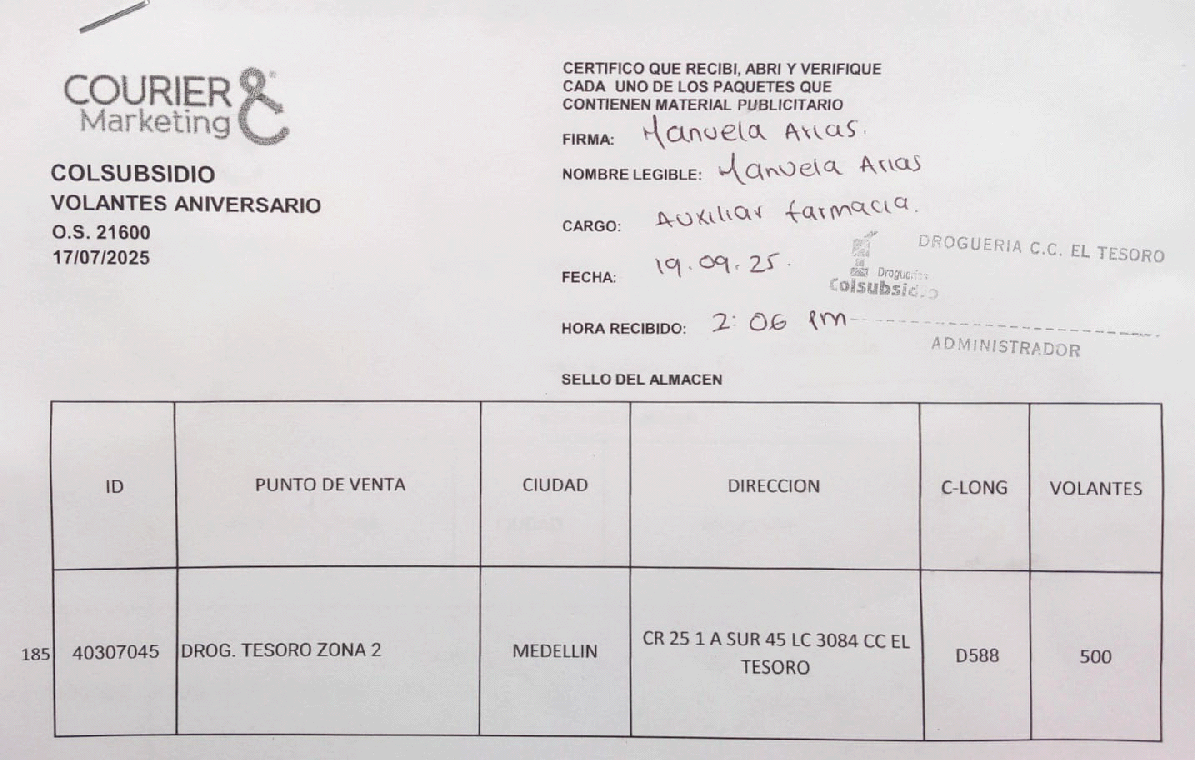 COURIER &
Marketing
COLSUBSIDIO
VOLANTES ANIVERSARIO
O.S. 21600
17/07/2025
CERTIFICO QUE RECIBI, ABRI Y VERIFIQUE
CADA UNO DE LOS PAQUETES QUE
CONTIENEN MATERIAL PUBLICITARIO
FIRMA: Manuela Arias.
NOMBRE LEGIBLE: Manuela Arias
CARGO: Auxiliar farmacia.
FECHA: 19.09.25.
HORA RECIBIDO: 2:06 PM
DROGUERIA C.C. EL TESORO
Droguerías
Colsubsidio
ADMINISTRADOR
SELLO DEL ALMACEN
ID PUNTO DE VENTA CIUDAD DIRECCION C-LONG VOLANTES
185 40307045 DROG. TESORO ZONA 2 MEDELLIN CR 25 1 A SUR 45 LC 3084 CC EL TESORO D588 500